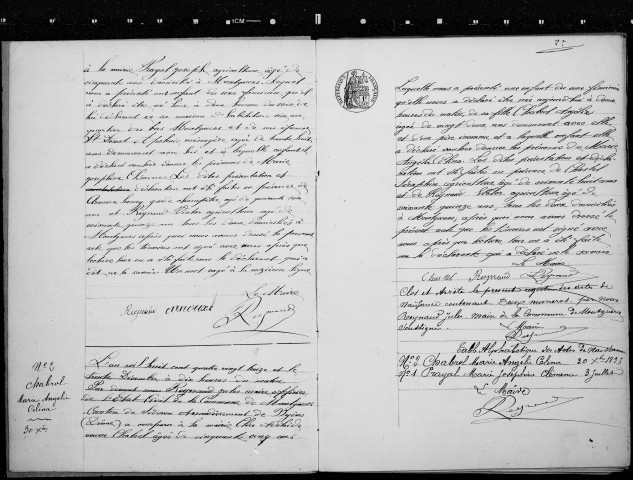 à la mairie Prayal Joseph agriculteur, âgé de
cinquante ans domicilié à Montguers, lequel
nous a présenté une enfant du sexe féminin qu'il
a déclaré être née hier à deux heures du
en sa maison d'habitation sise au
quartier des bas Montguers et de
ménagère âgée de trente huit
ans demeurant avec lui et à laquelle enfant il
a déclaré vouloir donner les prénoms de Marie
Joséphine Les dites présentation et
déclaration ont été faites en présence de
âgé de quarante six
ans et Reynaud Victor agriculteur âgé de
soixante quinze ans tous les deux domiciliés à
Montguers après que nous avons dressé le présent
acte que les témoins ont signé avec nous après que
lecture leur en a été faite le déclarant
Un mot rayé à la onzième ligne
Le Maire
Reynaud Reynaud
N° 2
Chabrol
Marie Angèle
Célina
30 Xbre
L'an mil huit cent quatre vingt treize et le
trente Décembre à dix heures du matin
Par devant nous Reynaud Jules maire officier
de l'Etat Civil de la Commune de Montguers
Canton de Séderon Arrondissement de Nyons
(Drôme) a comparu à la mairie
veuve Chabrol âgée de cinquante cinq ans
Laquelle nous a présenté une enfant du sexe féminin
qu'elle nous a déclaré être née aujourd'hui à deux
heures du matin de sa fille Chabrol Angèle
âgée de vingt deux ans demeurant avec elle
et d'un père inconnu et à laquelle enfant elle
a déclaré vouloir donner les prénoms de Marie
Angèle Célina. Les dites présentation et décla-
ration ont été faites en présence de Chastel
Séraphin agriculteur âgé de soixante huit ans
et de Reynaud Victor agriculteur âgé de
soixante quinze ans, tous les deux domiciliés
à Montguers, après que nous avons dressé le
présent acte que les témoins ont signé avec
nous après que lecture leur en a été faite
la déclarante qui a déclaré ne le savoir
Le Maire
Chastel Reynaud Reynaud
Clos et Arrêté le présent registre des actes de
naissance contenant Deux numéros par nous
Reynaud Jules maire de la Commune de Montguers
soussigné.
Le Maire
Table Alphabétique des Actes de Naissance
N° 2 Chabrol Marie Angèle Célina 30 Xbre 1893
N° 1 Prayal Marie Joséphine 3 Juillet
Le Maire
Reynaud